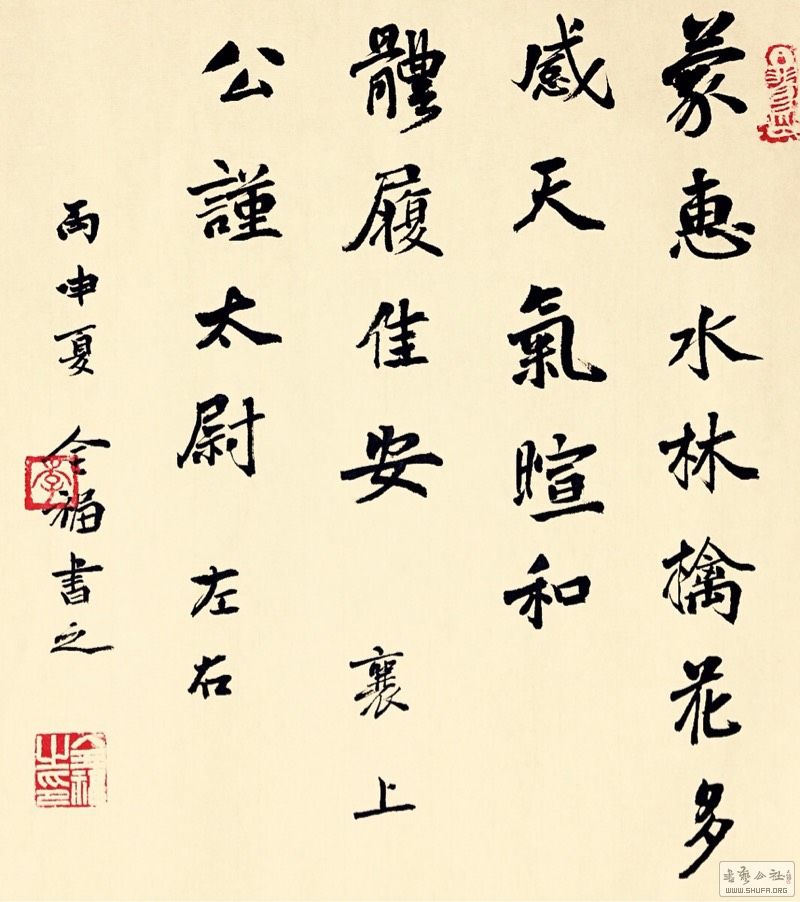 蒙惠水林檎花多
感天氣暄和
體履佳安 襄上
公謹太尉 左右
丙申夏 全福書之
書藝公社
WWW.SHUFA.ORG